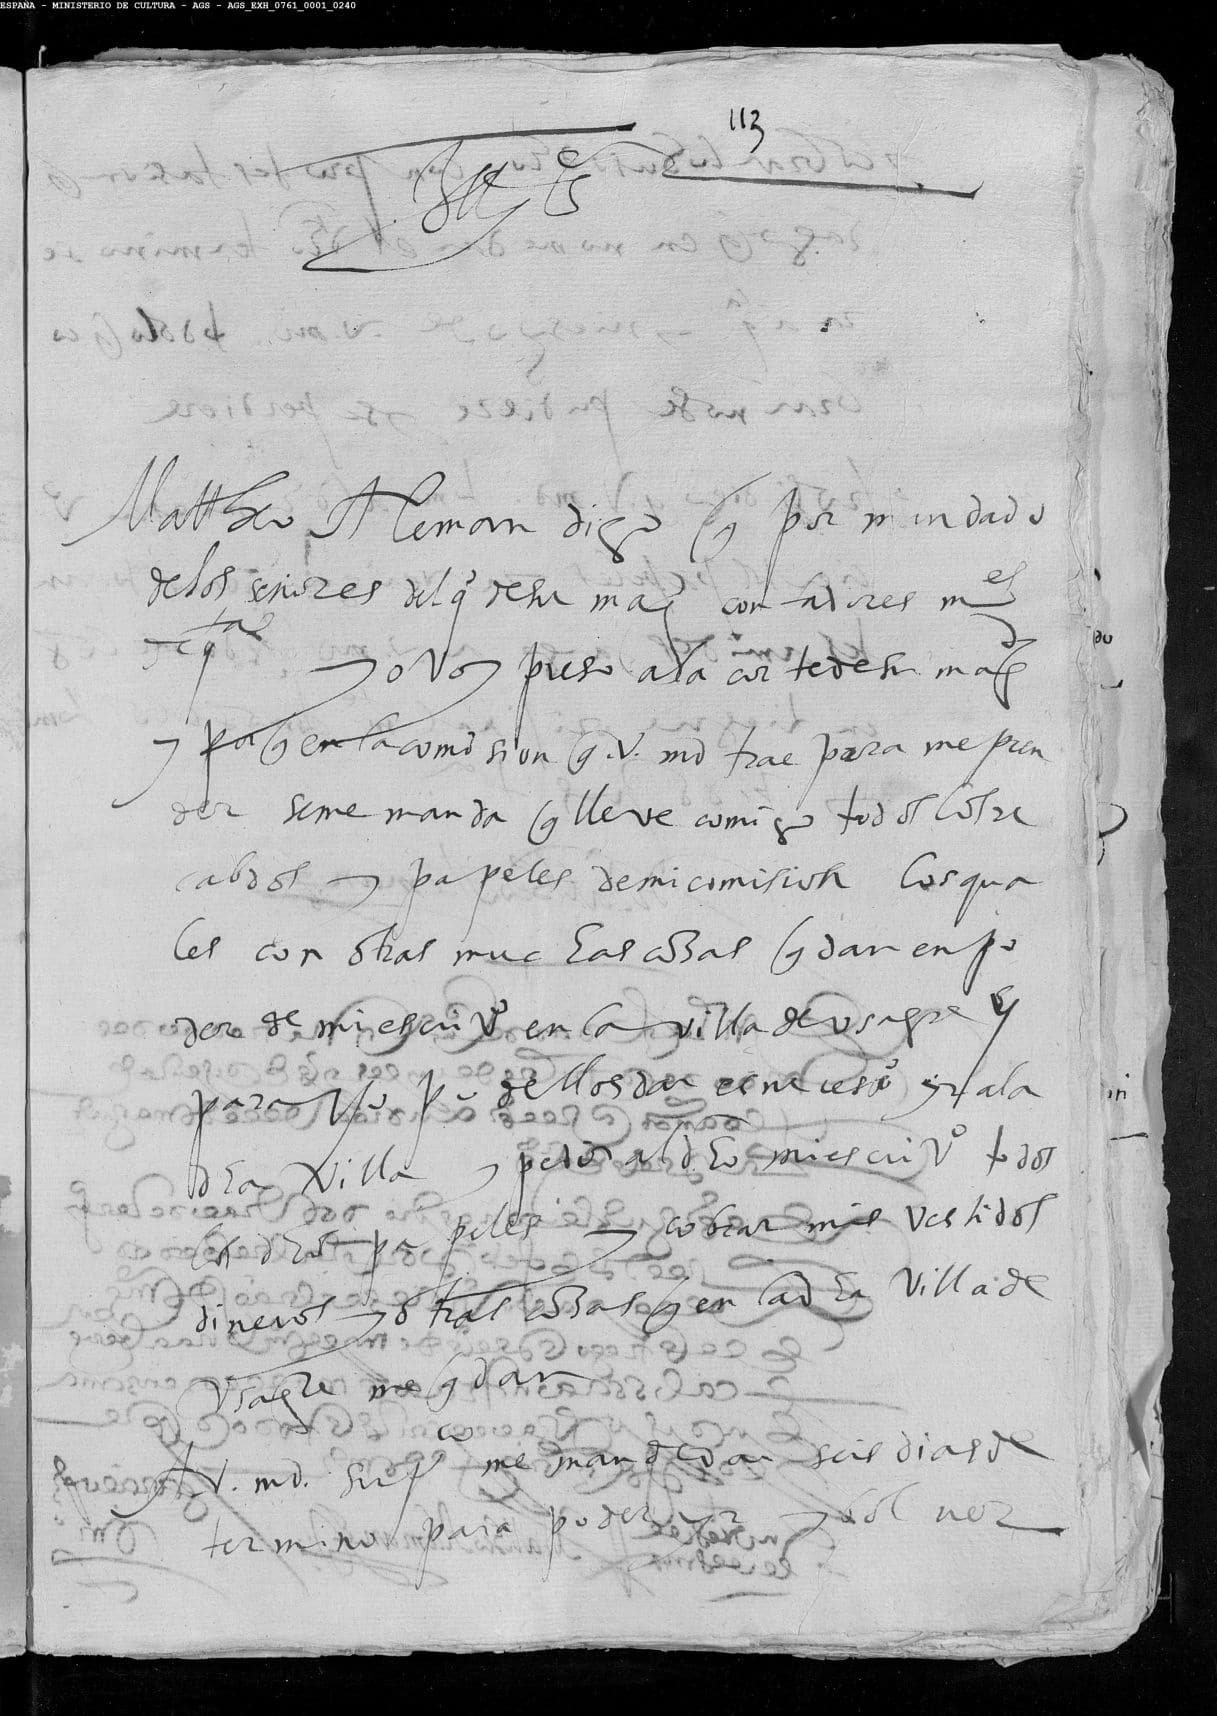 ESPAÑA - MINISTERIO DE CULTURA - AGS - AGS_EXH_0761_0001_0240
113
Mattheo Aleman digo q por mandado
de los señores del qº de su magᵈ contadores mᵉˢ
de qᵗᵃˢ yo voy preso a la corte de su magᵈ
y porq en la comision q. v. md trae para me pren
der se me manda q lleve comigo todos los re
cabdos y papeles de mi comision los qua
les con otras muchas cosas qdan en po
der de mi escriuº en la villa de usagre y
para yo po dellos dar es necesº yr a la
dha villa y pedir al dho mi escriuº todos
los dhos papeles y cobrar mis vestidos
dineros y otras cosas q en la dha villa de
usagre me qdan
A v. md. supᶜᵒ me mande dar seis dias de
termino para poder yr y bolver